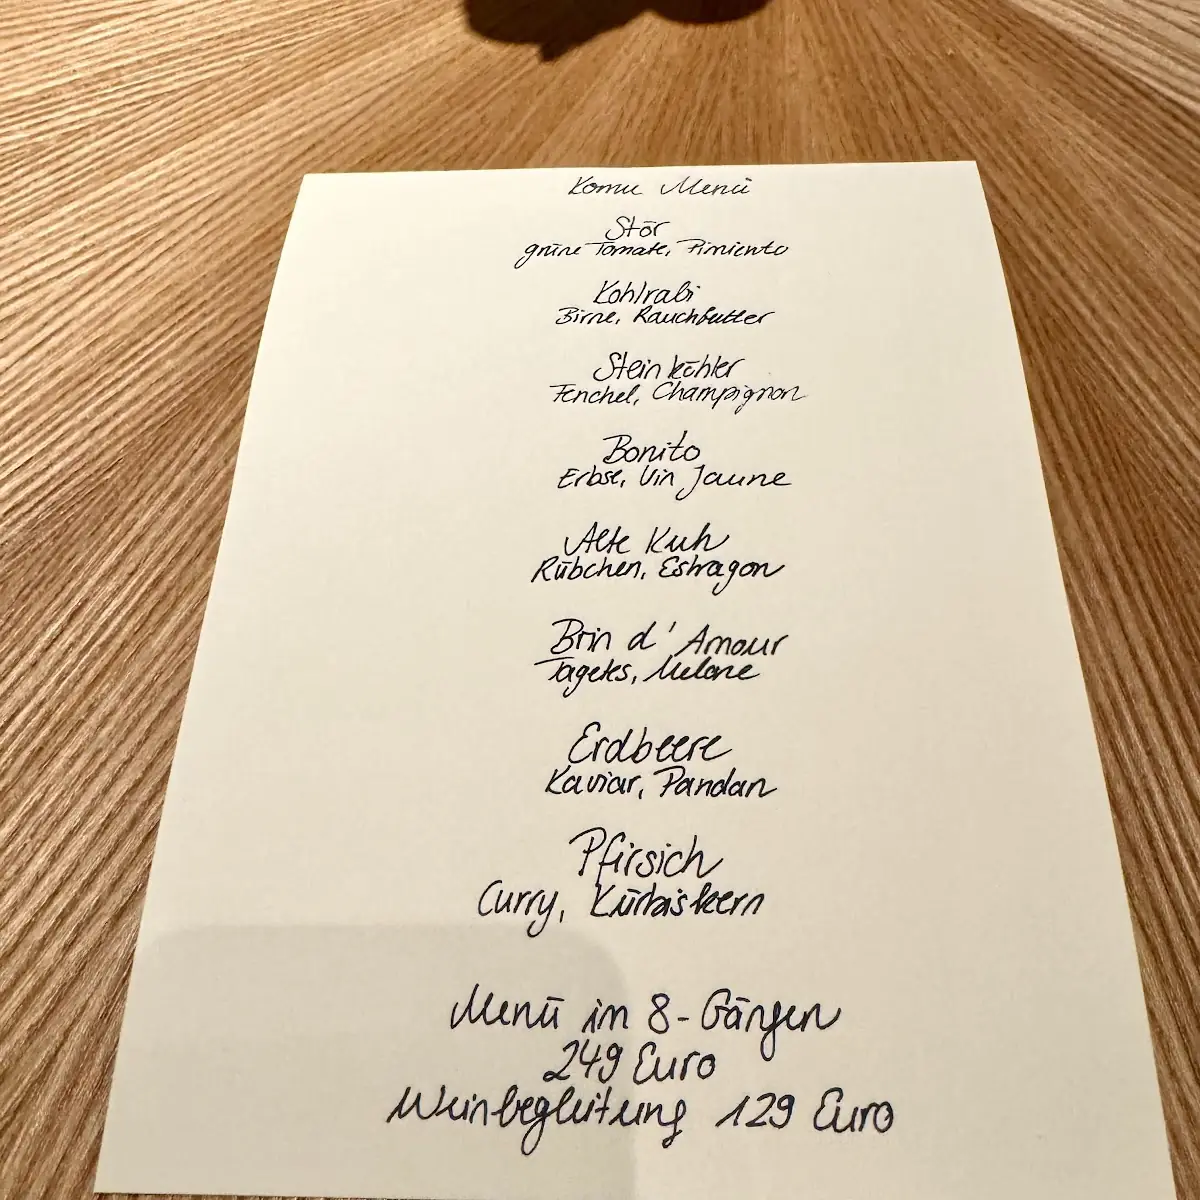 Komu Menü
Stör
grüne Tomate, Pimiento
Kohlrabi
Birne, Rauchbutter
Steinköhler
Fenchel, Champignon
Bonito
Erbse, Vin Jaune
Alte Kuh
Rübchen, Estragon
Brin d'Amour
Tagetes, Melone
Erdbeere
Kaviar, Pandan
Pfirsich
Curry, Kürbiskern
Menü in 8-Gängen
249 Euro
Weinbegleitung 129 Euro